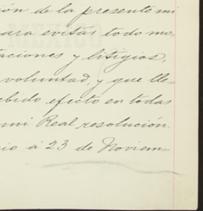 ión de la presente mi
para evitar todo mo
taciones y litigios,
voluntad, y que lle
ebido efecto en todas
mi Real resolución.
io á 23 de Noviem